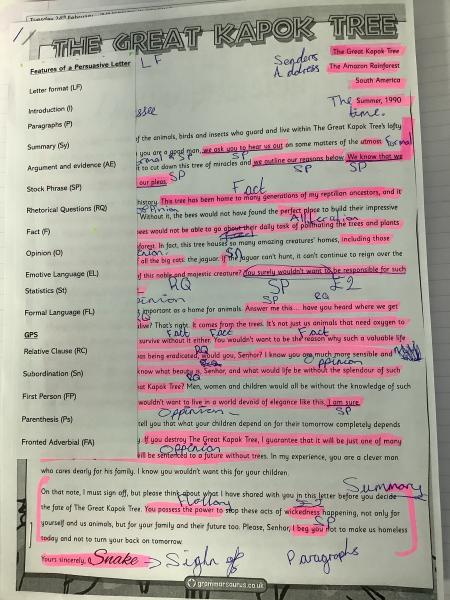 Tuesday 24th February
THE GREAT KAPOK TREE
Features of a Persuasive Letter
LF
Senders Address
The Great Kapok Tree
The Amazon Rainforest
South America
Letter format (LF)
The Summer, 1990
time.
Introduction (I)
Paragraphs (P)
of the animals, birds and insects who guard and live within The Great Kapok Tree's lofty
Summary (Sy)
you are a good man, we ask you to hear us out on some matters of the utmost
Formal
SP SP
Argument and evidence (AE)
to cut down this tree of miracles and we outline our reasons below. We know that we
SP SP SP
our pleas.
Stock Phrase (SP)
Fact
history. This tree has been home to many generations of reptilian ancestors, and it
Rhetorical Questions (RQ)
Without it, the bees would not have found the perfect place to build their impressive
Alliteration
Fact (F)
bees would not be able to go about their daily task of pollinating the trees and plants
forest. In fact, this tree houses so many amazing creatures' homes, including those
Opinion (O)
Sn
all the big cats: the jaguar. If the jaguar can't hunt, it can't continue to reign over the
Emotive Language (EL)
of this noble and majestic creature? You surely wouldn't want to be responsible for such
Statistics (St)
RQ SP
SP RQ
Formal Language (FL)
important as a home for animals. Answer me this... have you heard where we get
RQ
alive? That's right. It comes from the trees. It's not just us animals that need oxygen to
GPS
Fact Fact Fact
survive without it either. You wouldn't want to be the reason why such a valuable life
Relative Clause (RC)
RQ
was being eradicated, would you, Senhor? I know you are much more sensible and
Opinion
Subordination (Sn)
know what beauty is, Senhor, and what would life be without the splendour of such
RQ
First Person (FP)
Great Kapok Tree? Men, women and children would all be without the knowledge of such
wouldn't want to live in a world devoid of elegance like this, I am sure.
Oppinion SP
Parenthesis (Ps)
tell you that what your children depend on for their tomorrow completely depends
Fronted Adverbial (FA)
If you destroy The Great Kapok Tree, I guarantee that it will be just one of many
Oppinion
will be sentenced to a future without trees. In my experience, you are a clever man
who cares dearly for his family. I know you wouldn't want this for your children.
Summary
On that note, I must sign off, but please think about what I have shared with you in this letter before you decide
the fate of The Great Kapok Tree. You possess the power to stop these acts of wickedness happening, not only for
SP
yourself and us animals, but for your family and their future too. Please, Senhor, I beg you not to make us homeless
today and not to turn your back on tomorrow.
Yours sincerely, Snake → Sighn of
Paragraphs
grammarsaurus.co.uk